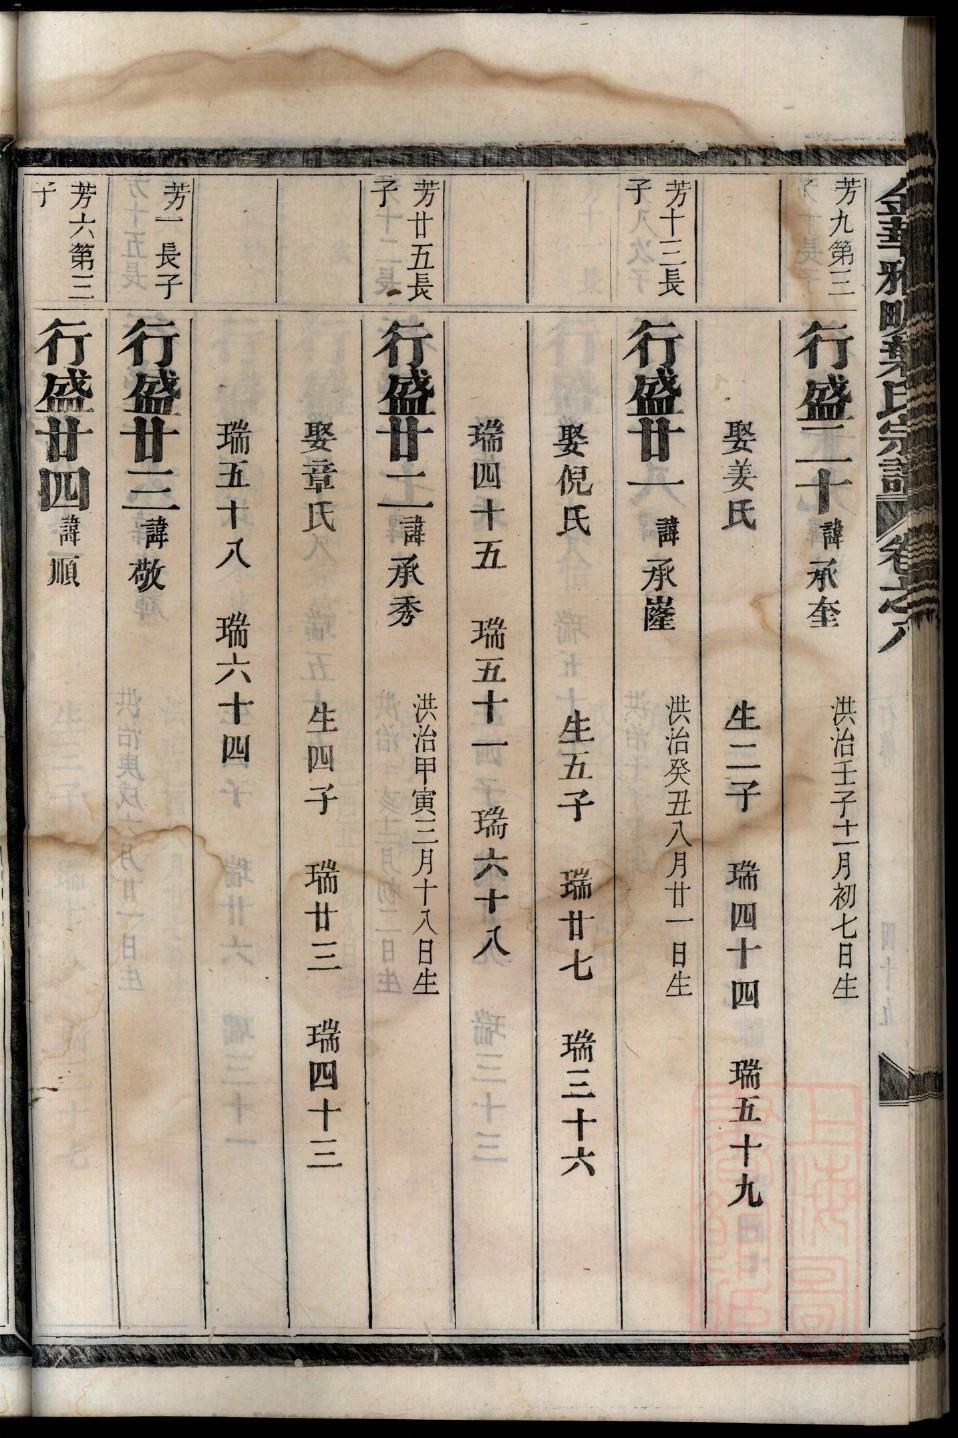 金華雅畈葉氏宗譜 卷之八
芳九第三子
行盛二十 諱承奎 洪治壬子十一月初七日生
娶姜氏 生二子 瑞四十四 瑞五十九
芳十三長子
行盛廿一 諱承嶐 洪治癸丑八月廿一日生
娶倪氏 生五子 瑞廿七 瑞三十六
瑞四十五 瑞五十一 瑞六十八
芳廿五長子
行盛廿二 諱承秀 洪治甲寅三月十八日生
娶章氏 生四子 瑞廿三 瑞四十三
瑞五十八 瑞六十四
芳一長子
行盛廿三 諱敬
芳六第三子
行盛廿四 諱順